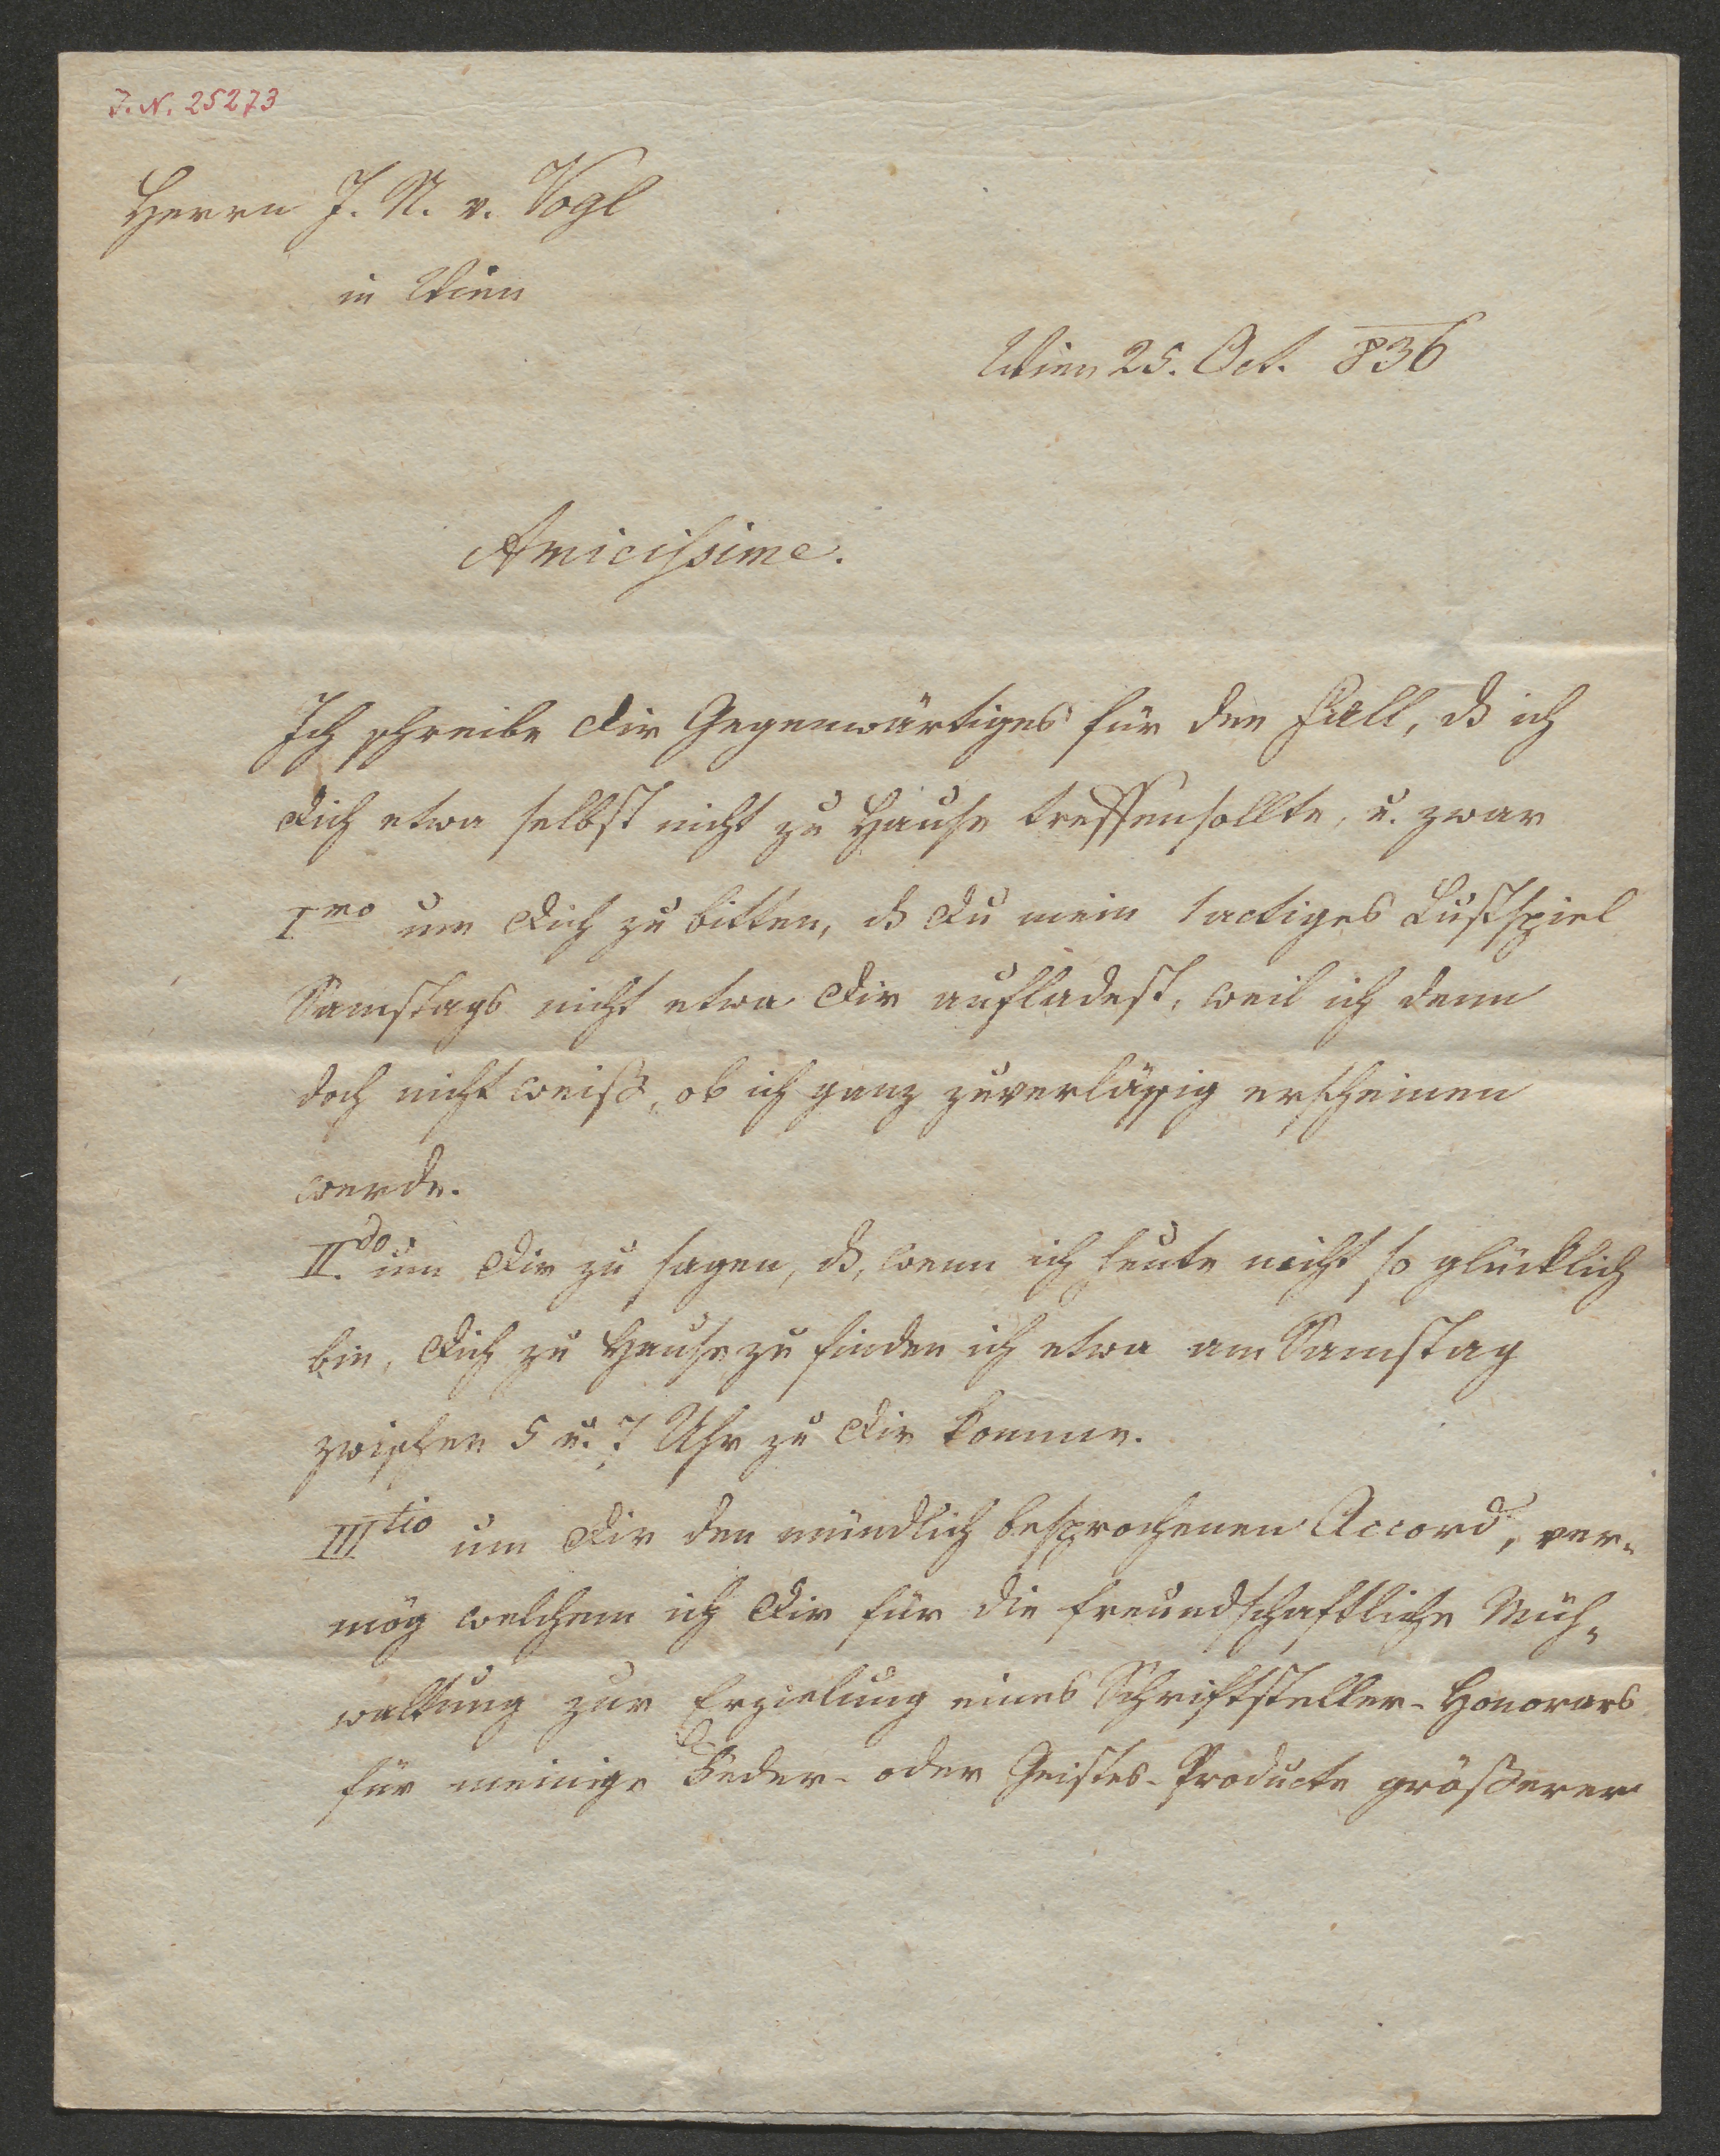 J. N. 25273
Herrn J. N. v. Vogl
in Wien
Wien 25. Oct. 836
Amicissime.
Ich schreibe Dir Gegenwärtiges für den Fall, dß ich
Dich etwa selbst nicht zu Hause treffen sollte, u. zwar
Imo um Dich zu bitten, dß Du mein 1actiges Lustspiel
Samstags nicht etwa Dir aufladest, weil ich denn
doch nicht weiß, ob ich ganz zuverlässig erscheinen
werde.
II.do um Dir zu sagen, dß, wenn ich heute nicht so glücklich
bin, Dich zu Hause zu finden ich etwa am Samstag
zwischen 5 u. 7 Uhr zu Dir komme.
IIItio um Dir den mündlich besprochenen Accord, ver-
mög welchem ich Dir für die freundschaftliche Müh-
waltung zur Erzielung eines Schriftsteller-Honorars
für meinige Feder- oder Geistes-Producte größerer